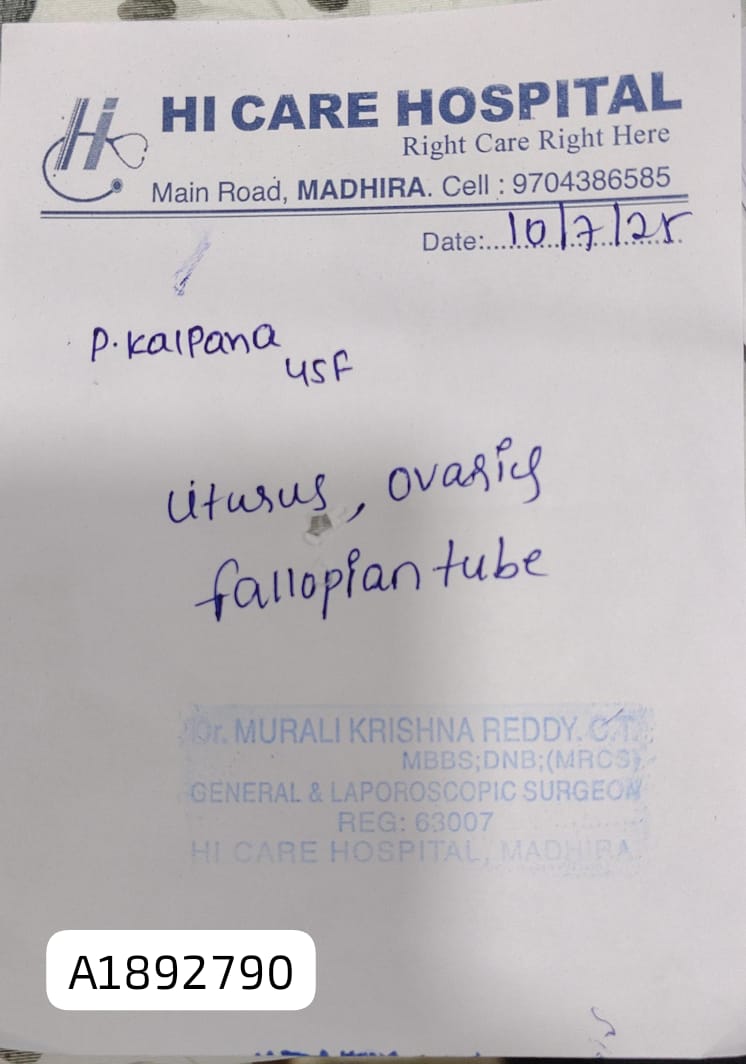 Hi
HI CARE HOSPITAL
Right Care Right Here
Main Road, MADHIRA. Cell : 9704386585
Date:....10/7/25
P. Kalpana
45F
Uturus, ovaries
fallopian tube
Dr. MURALI KRISHNA REDDY. C.T.
MBBS;DNB;(MRCS)
GENERAL & LAPOROSCOPIC SURGEON
REG: 63007
HI CARE HOSPITAL, MADHIRA
A1892790